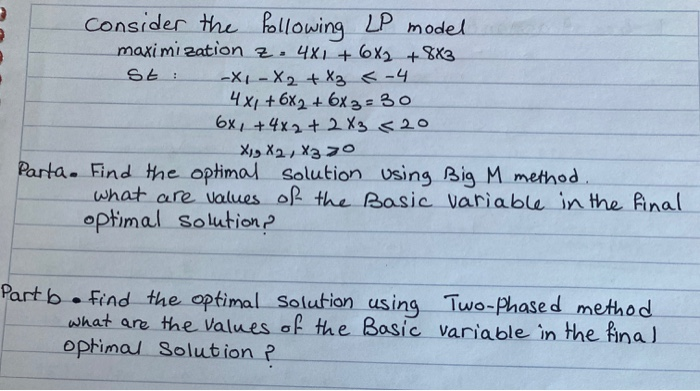 Consider the following LP model
maximization z = 4x1 + 6x2 + 8x3
St : -x1 - x2 + x3 ≤ -4
4x1 + 6x2 + 6x3 = 30
6x1 + 4x2 + 2x3 ≤ 20
x1, x2, x3 ≥ 0
Part a. Find the optimal solution using Big M method.
what are values of the Basic variable in the final
optimal solution?
Part b. Find the optimal solution using Two-Phased method
what are the values of the Basic variable in the final
optimal Solution?